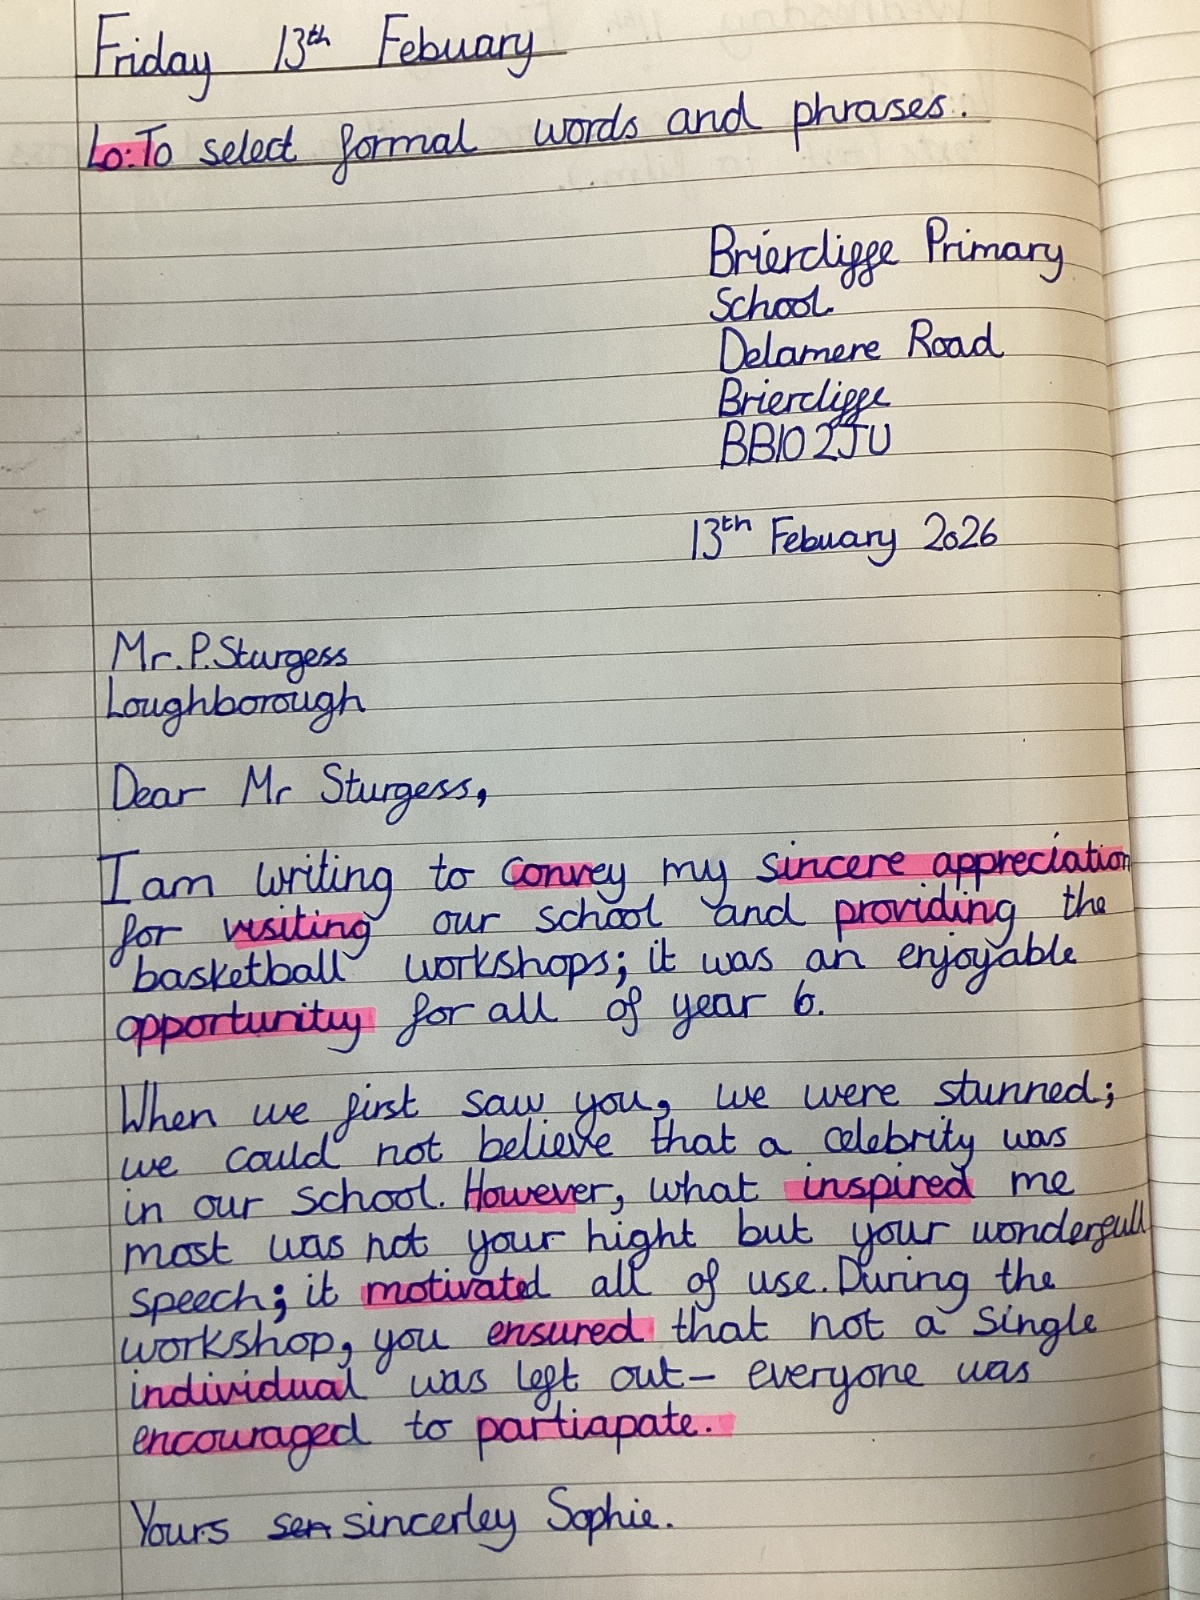 Friday 13th Febuary
Lo: To select formal words and phrases.
Briercliffe Primary
School
Delamere Road
Briercliffe
BB10 2JU
13th Febuary 2026
Mr. P. Sturgess
Loughborough
Dear Mr Sturgess,
I am writing to convey my sincere appreciation
for visiting our school and providing the
basketball workshops; it was an enjoyable
opportunitiy for all of year 6.
When we first saw you, we were stunned;
we could not believe that a celebrity was
in our school. However, what inspired me
most was not your hight but your wonderfull
speech; it motivated all of use. During the
workshop, you ensured that not a single
individual was left out- everyone was
encouraged to participate.
Yours sen sincerley Sophie.